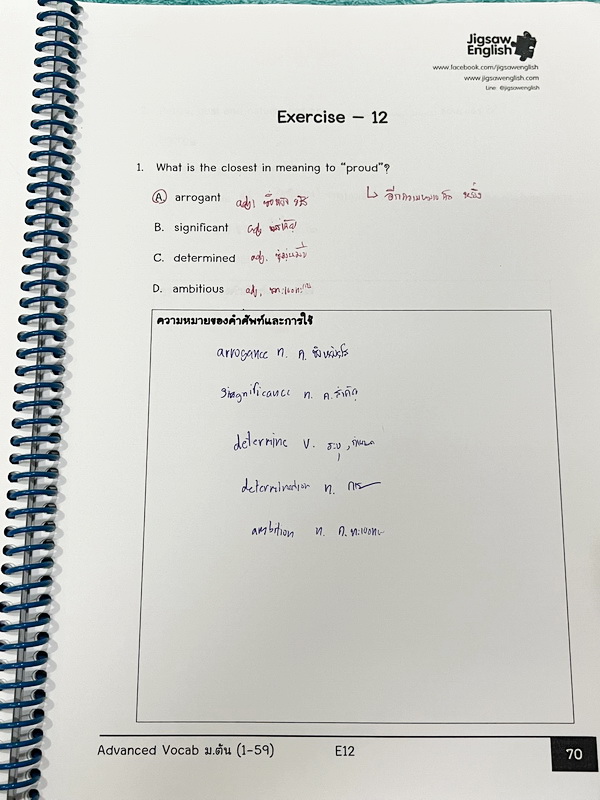 Jigsaw
English
www.facebook.com/jigsawenglish
www.jigsawenglish.com
Line @jigsawenglish
Exercise – 12
1. What is the closest in meaning to “proud”?
A. arrogant adj
B. significant adj
C. determined adj.
D. ambitious adj.
ความหมายของคำศัพท์และการใช้
arrogance n. ค.
significance n. ค. สำคัญ
determine v. ระบุ, กำหนด
determination n. การ
ambition n. ค. ทะเยอทะ
Advanced Vocab ม.ต้น (1-59) E12 70